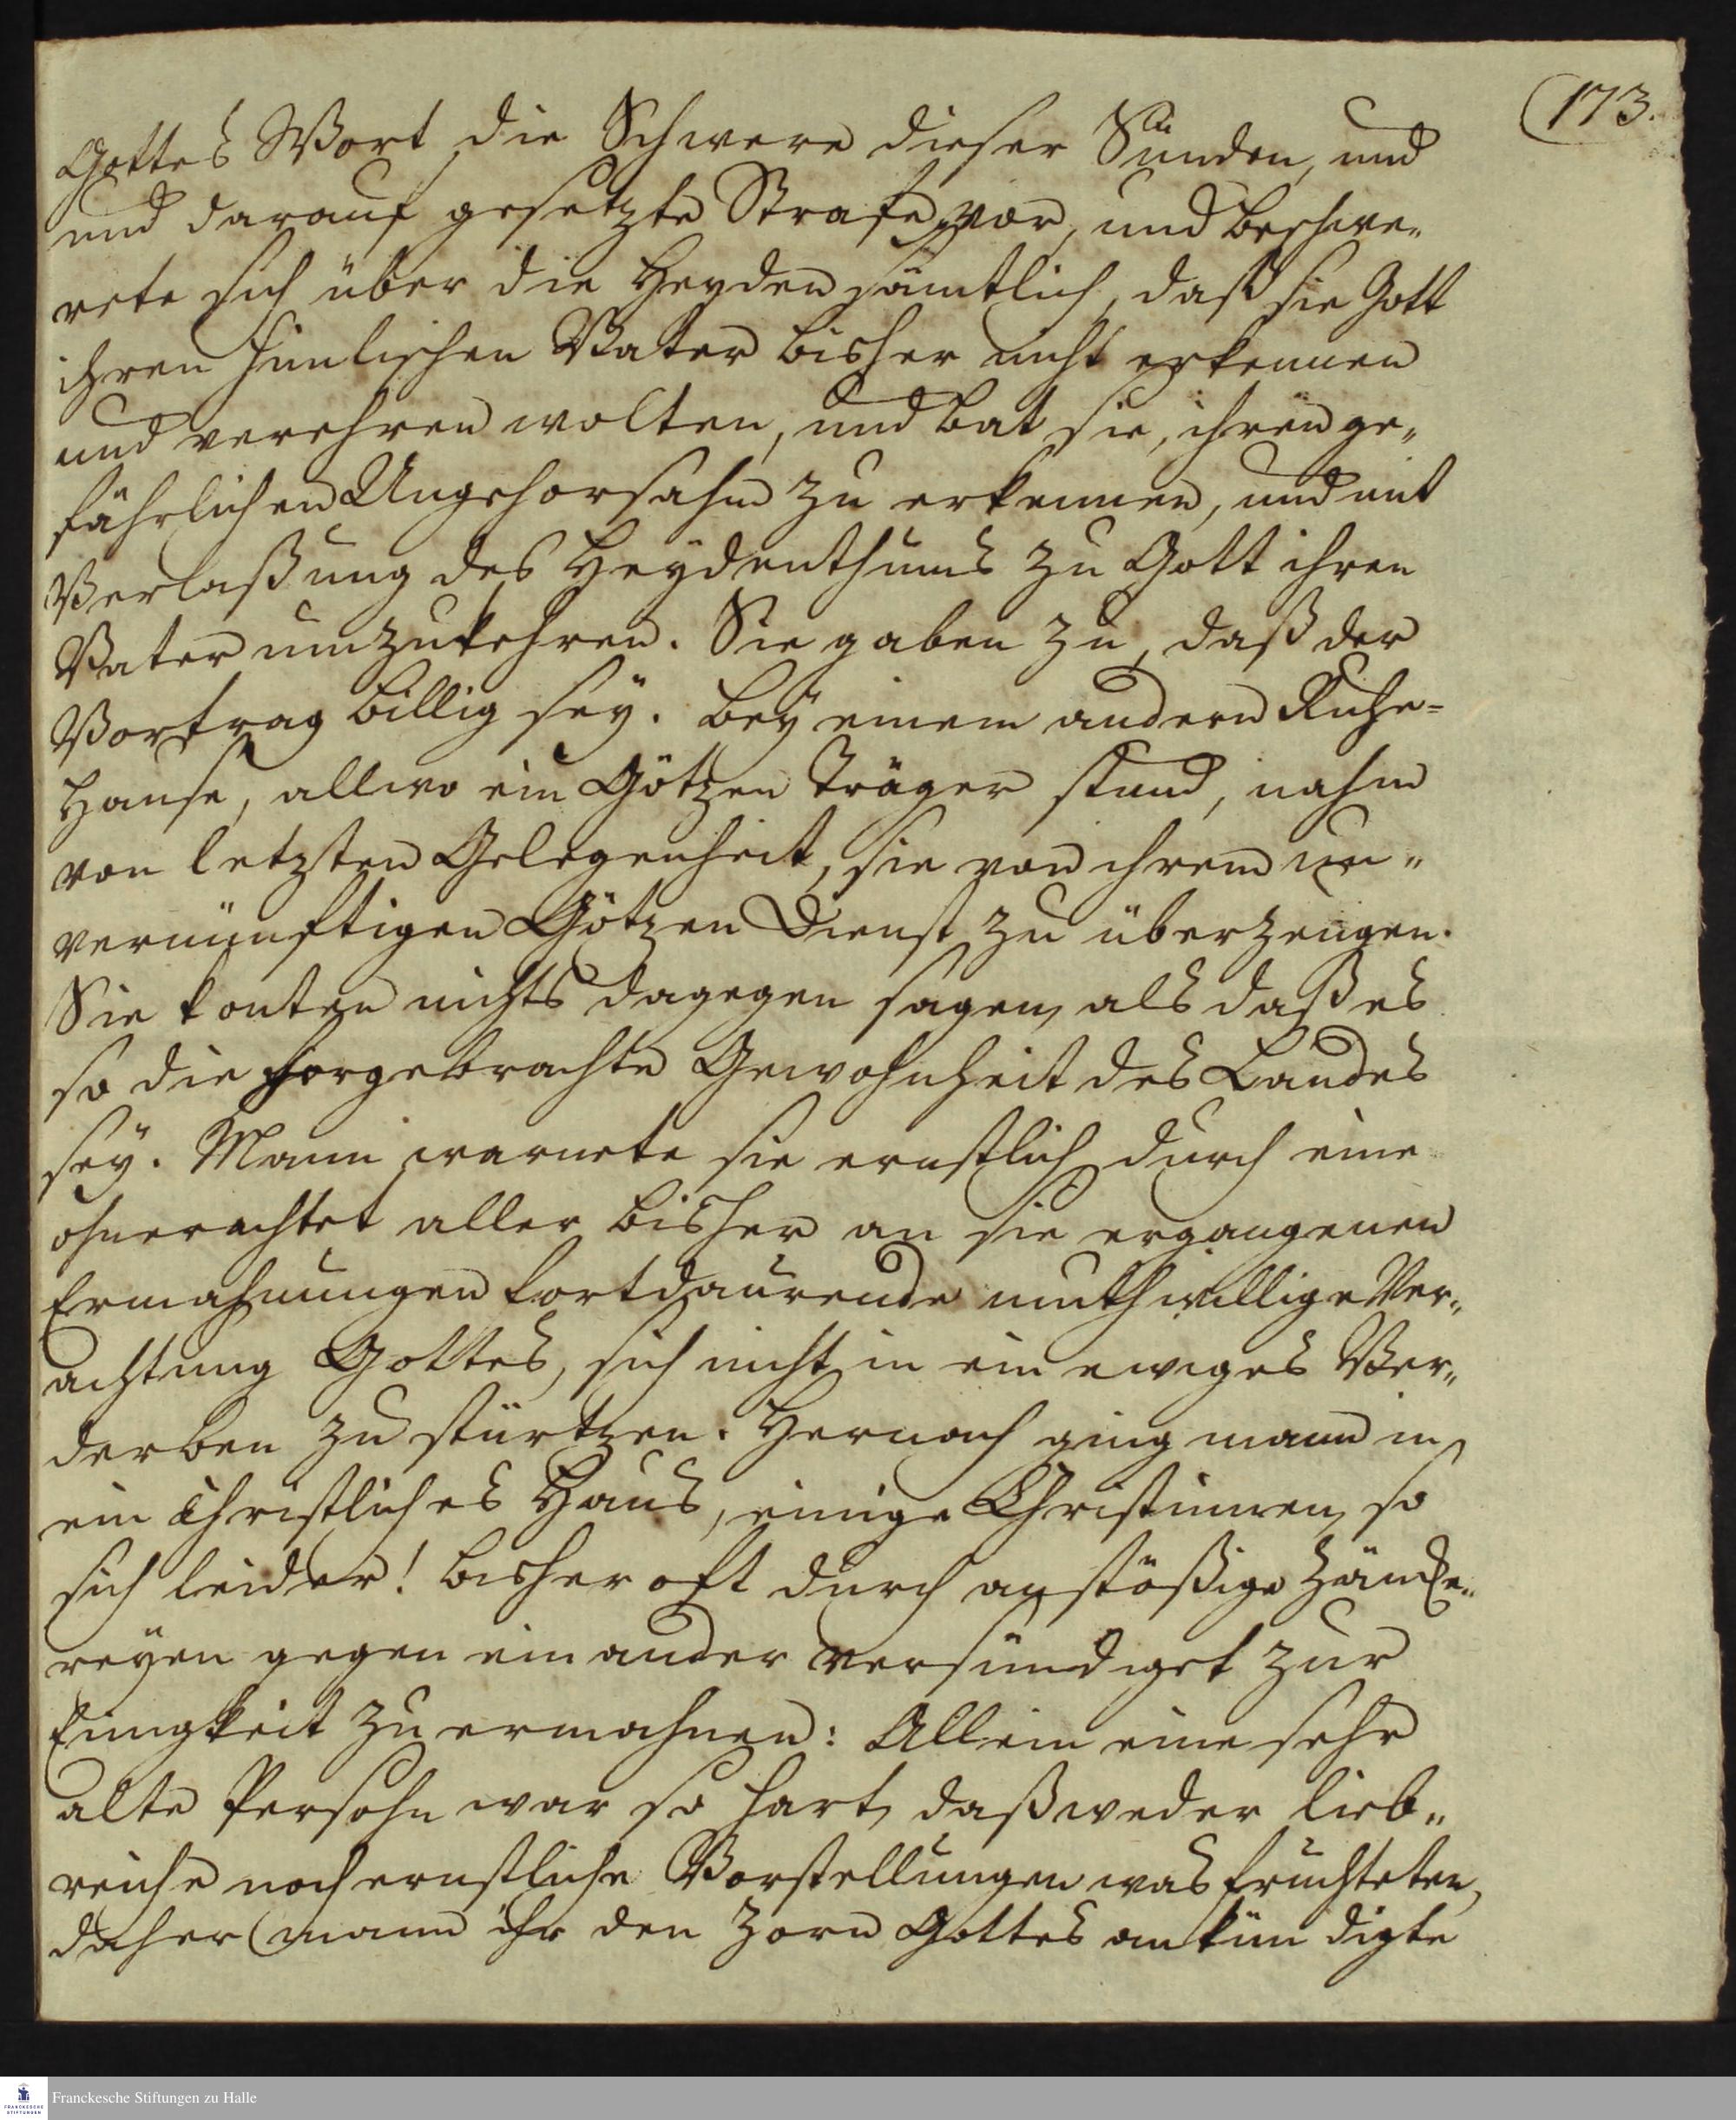 173.
Gottes Wort die Schwere dieser Sünden, und
und darauf gesetzte Strafe vor, und beschwe„
rete sich über die Heyden sämtlich, daß sie Gott
ihren himlischen Vater bisher nicht erkennen
und verehren wolten, und bat sie, ihren ge„
fährlichen Ungehorsahm zu erkennen, und mit
Verlaßung des Heydenthums zu Gott ihren
Vater umzukehren. Sie gaben zu, daß der
Vortrag billig seÿ. Beÿ einem andern Ruhe-
Hause, allwo ein Götzen Träger stund, nahm
von letzten Gelegenheit, sie von ihrem un„
vernünftigen Götzen Dienst zu überzeugen.
Sie konten nichts dagegen sagen, als daß es
so die hergebrachte Gewohnheit des Landes
seÿ. Mann warnete sie ernstlich durch eine
ohnerachtet aller bisher an sie ergangenen
Ermahnungen fortdaurende muthwillige Ver„
achtung Gottes, sich nicht in ein ewiges Ver„
derben zu stürtzen. Hernach ging mann in
ein Christliches Haus, einige Christinnen, so
sich leider! bisher oft durch anstößige Zäncke„
reÿen gegen einander versündiget zur
Einigkeit zu ermahnen: Allein eine sehr
alte Persohn war so hart, daß weder lieb„
reiche noch ernstliche Vorstellungen was fruchteten,
daher mann ihr den Zorn Gottes ankündigte
Franckesche Stiftungen zu Halle
FRANCKESCHE
STIFTUNGEN